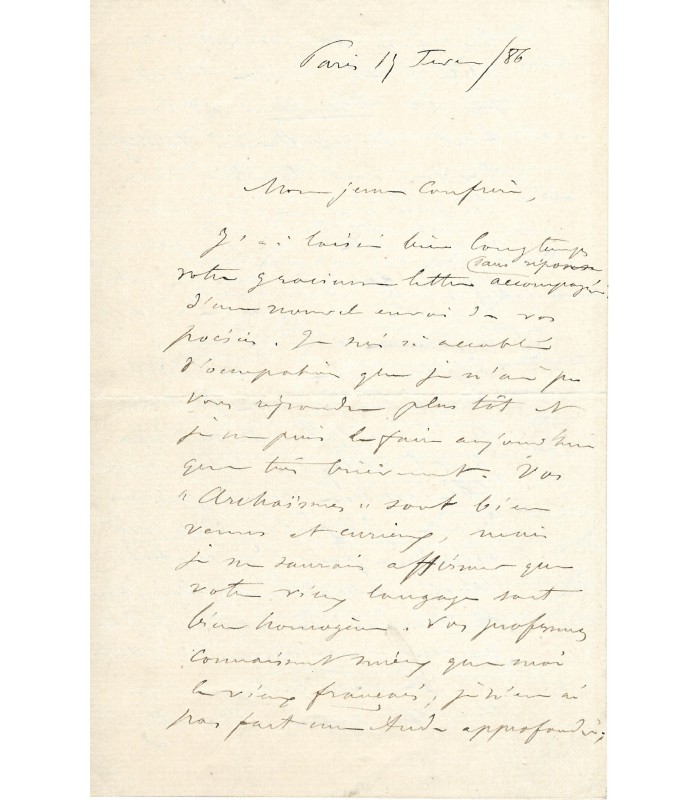 Paris 15 /86
Mon jeune Confrère,
J'ai laissé bien longtemps
sans réponse
votre gracieuse lettre accompagnée
d'un nouvel envoi de vos
poésies. Je suis si accablé
d'occupations que je n'ai pu
vous répondre plus tôt et
je ne puis le faire aujourd'hui
que très brièvement. Vos
"Archaïsmes" sont bien
venus et curieux, mais
je ne saurais affirmer que
votre vieux langage soit
bien homogène. Vos professeurs
connaissent mieux que moi
le vieux français; je n'en ai
pas fait une étude approfondie;